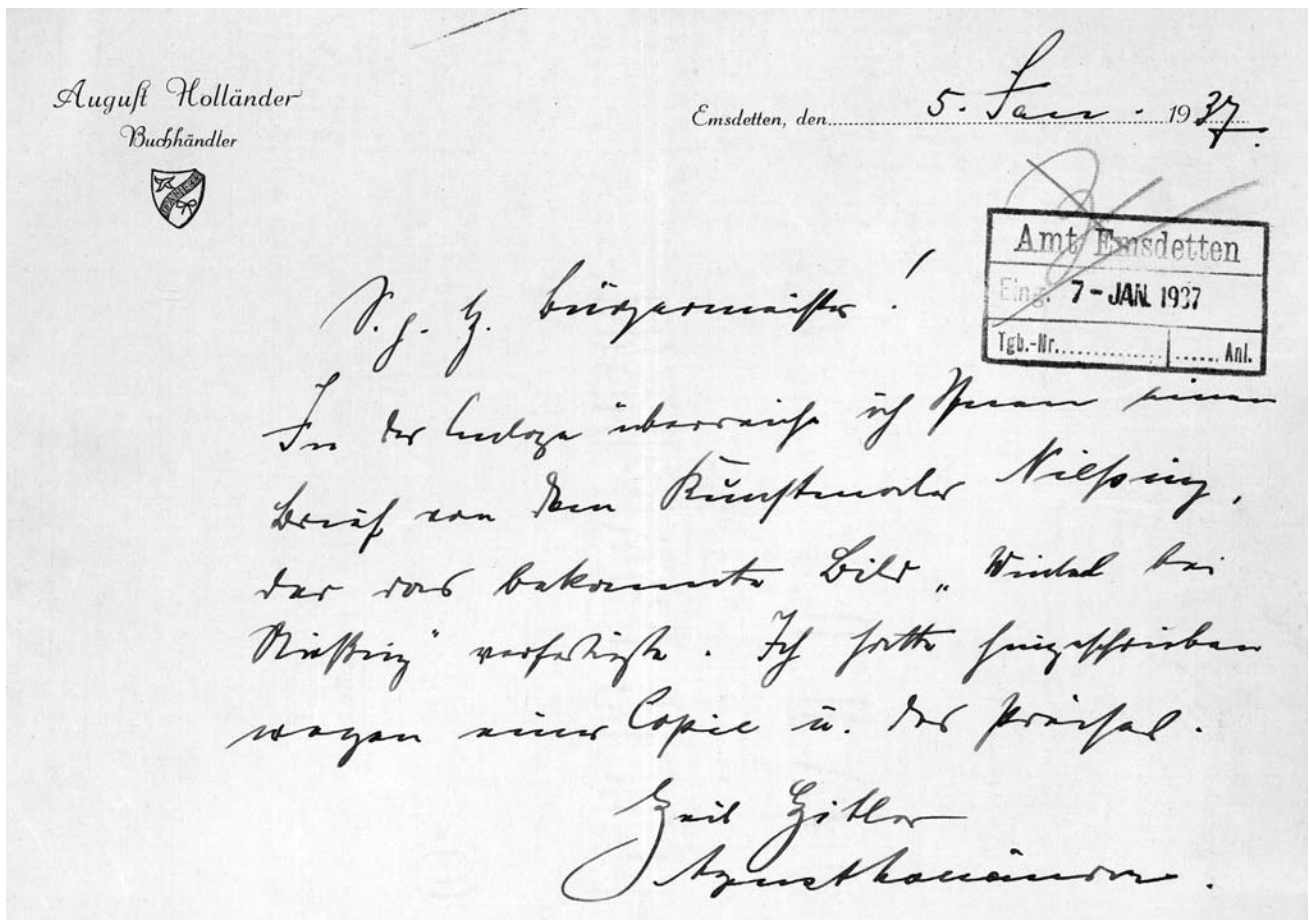 August Holländer
Buchhändler
Emsdetten, den 5. Jan. 1937.
Amt Emsdetten
Eing. 7-JAN. 1937
Tgb.-Nr. Anl.
S. g. H. Bürgermeister!
In der Anlage überreiche ich Ihnen einen
Brief von dem Kunstmaler Nießing,
der das bekannte Bild „ bei
verfertigte. Ich hatte hingeschrieben
wegen einer Copie u. des
Heil Hitler
August Holländer.